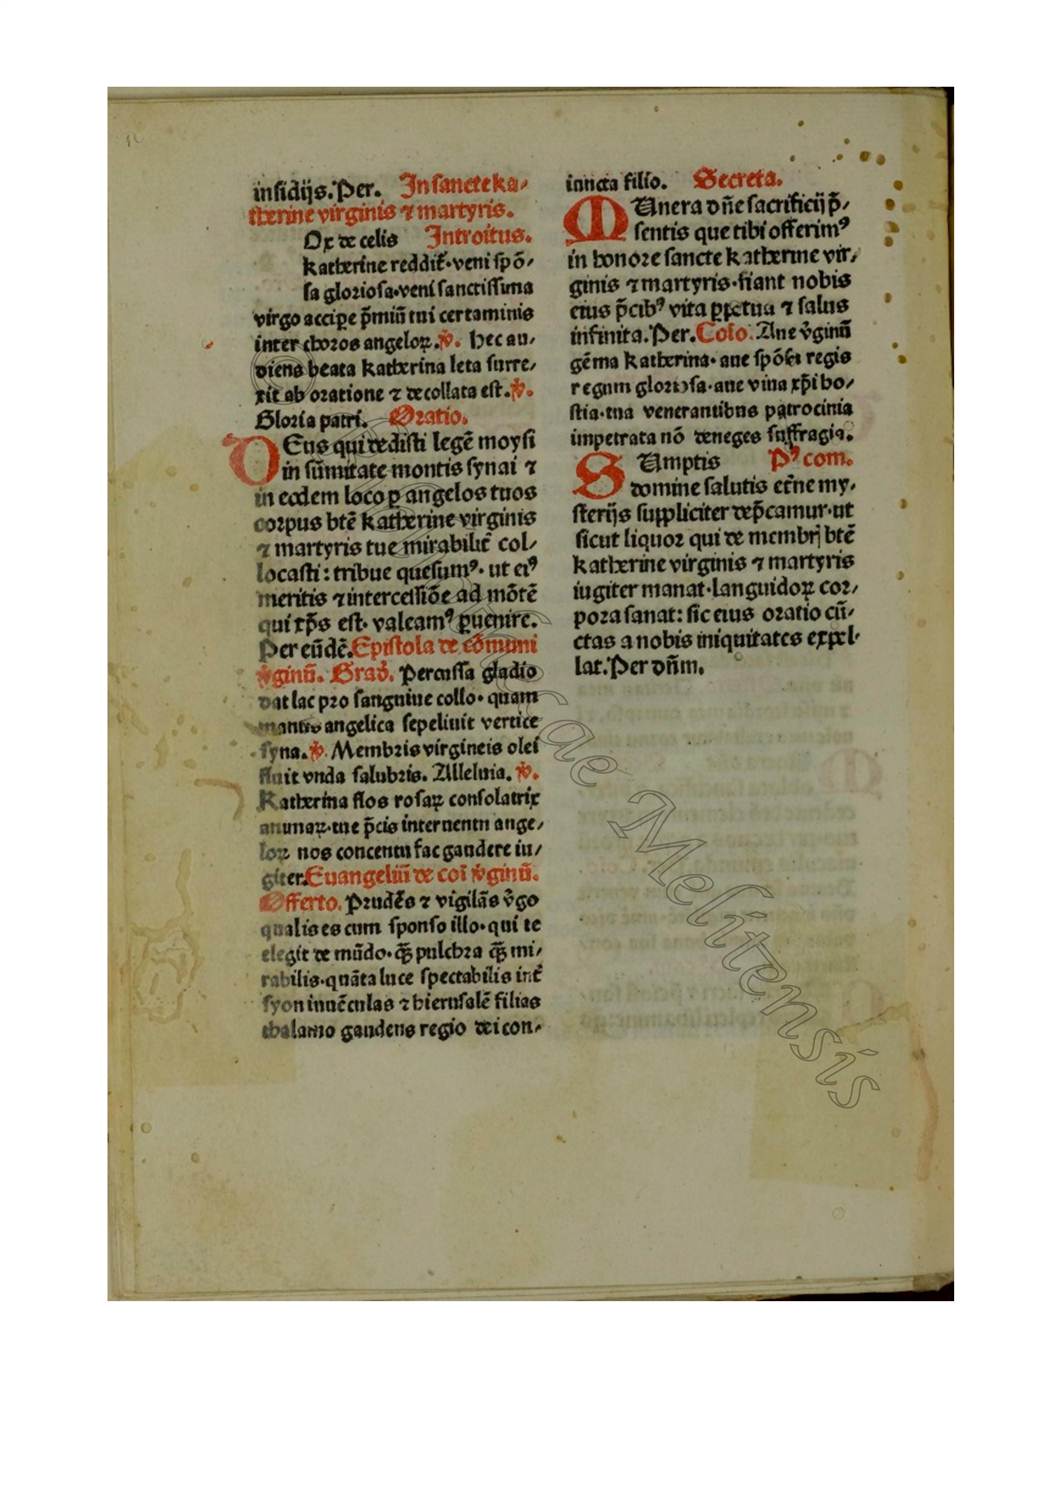 insidijs. Per. In sancte ka-
therine virginis ⁊ martyris.
Ox de celis Introitus.
katherine reddit̃· veni spõ-
sa gloriosa· veni sanctissima
virgo accipe p̃miũ tui certaminis
inter choros angeloꝝ. ꝟ. hec au-
diens beata katherina leta surre-
xit ab oratione ⁊ decollata est. ꝟ.
Gloria patri. Oratio.
DEus qui dedisti legẽ moysi
in sũmitate montis synai ⁊
in eodem loco ꝑ angelos tuos
corpus btẽ katherine virginis
⁊ martyris tue mirabilit̃ col-
locasti: tribue quesumꝰ· ut eiꝰ
meritis ⁊ intercessiõe ad mõtẽ
qui xp̃s est· valeamꝰ ꝑuenire.
Per eũdẽ. Epistola de cõmuni
v̓ginũ. Grad̓. Percussa gladio
dat lac pro sanguine collo· quam
manus angelica sepeliuit vertice
syna. ꝟ. Membris virgineis olei
fluit vnda salubris. Alleluia. ꝟ.
Katherina flos rosaꝝ consolatrix
animaꝝ· tue p̃cis interuentu ange-
loꝝ nos concentu fac gaudere iu-
giter. Euangeliũ de coĩ v̓ginũ.
Offerto. Prudẽs ⁊ vigilãs v̓go
qualis es cum sponso illo· qui te
elegit de mũdo· q̃ꝫ pulchra q̃ꝫ mi-
rabilis· quãta luce spectabilis int̃
syon iuuẽculas ⁊ hierusalẽ filias
thalamo gaudens regio dei con-
iuncta filio. Secreta.
MUnera dñe sacrificij p̃-
sentis que tibi offerimꝰ
in honore sancte katherine vir-
ginis ⁊ martyris· fiant nobis
eius p̃cibꝰ vita ꝑpetua ⁊ salus
infinita. Per. Cõio. Aue v̓ginũ
gẽma katherina· aue spõsa regis
regum gloriosa· aue viua xp̃i ho-
stia· tua venerantibus patrocinia
impetrata nõ deneges suffragia.
SUmptis Pꝰ com.
domine salutis et̃ne my-
sterijs suppliciter dep̃camur· ut
sicut liquor qui de membrꝭ btẽ
katherine virginis ⁊ martyris
iugiter manat· languidoꝝ cor-
pora sanat: sic eius oratio cũ-
ctas a nobis iniquitates expel-
lat. Per dñm.
Melitensis